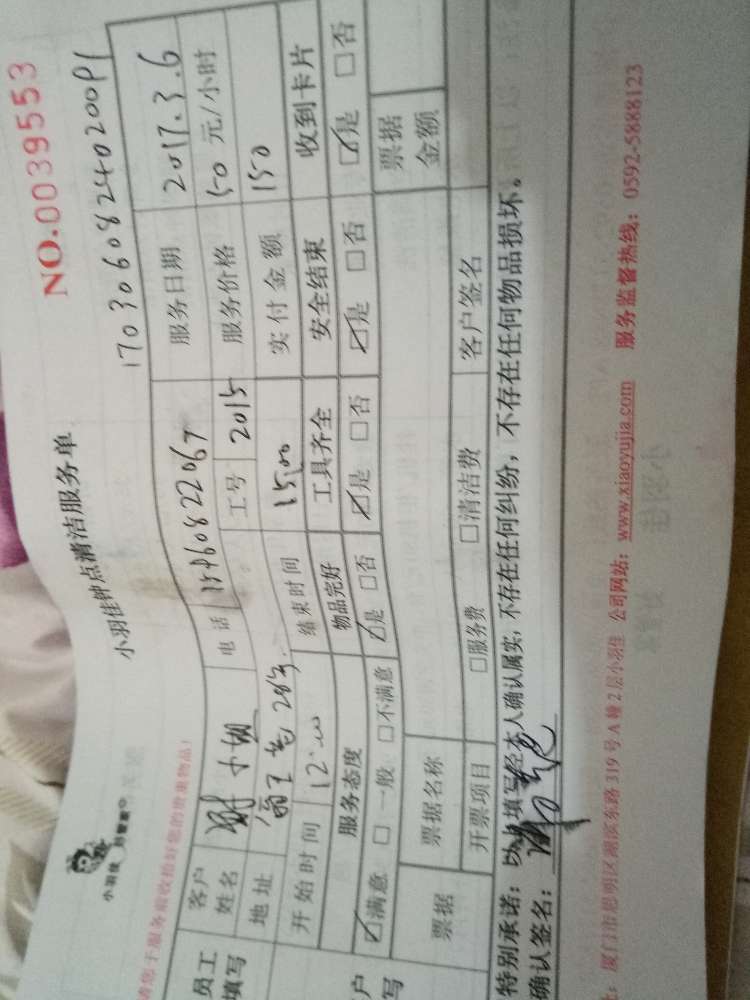 NO.0039553
小羽佳钟点清洁服务单
17030608240200P1
小羽佳
请您于服务前收拾好您的贵重物品!
员工填写
客户姓名 小姐 电话 服务日期 2017.3.6
地址 工号 2015 服务价格 50 元/小时
开始时间 12:00 结束时间 15:00 实付金额 150
服务态度 物品完好 工具齐全 安全结束 收到卡片
☑满意 □一般 □不满意 ☑是 □否 ☑是 □否 ☑是 □否 ☑是 □否
票据 票据名称 票据金额
开票项目 □服务费 □清洁费 客户签名
特别承诺:以上填写经本人确认属实,不存在任何纠纷,不存在任何物品损坏。
确认签名:
厦门市思明区湖滨东路 319 号 A 幢 2 层小羽佳 公司网站:www.xiaoyujia.com 服务监督热线:0592-5888123